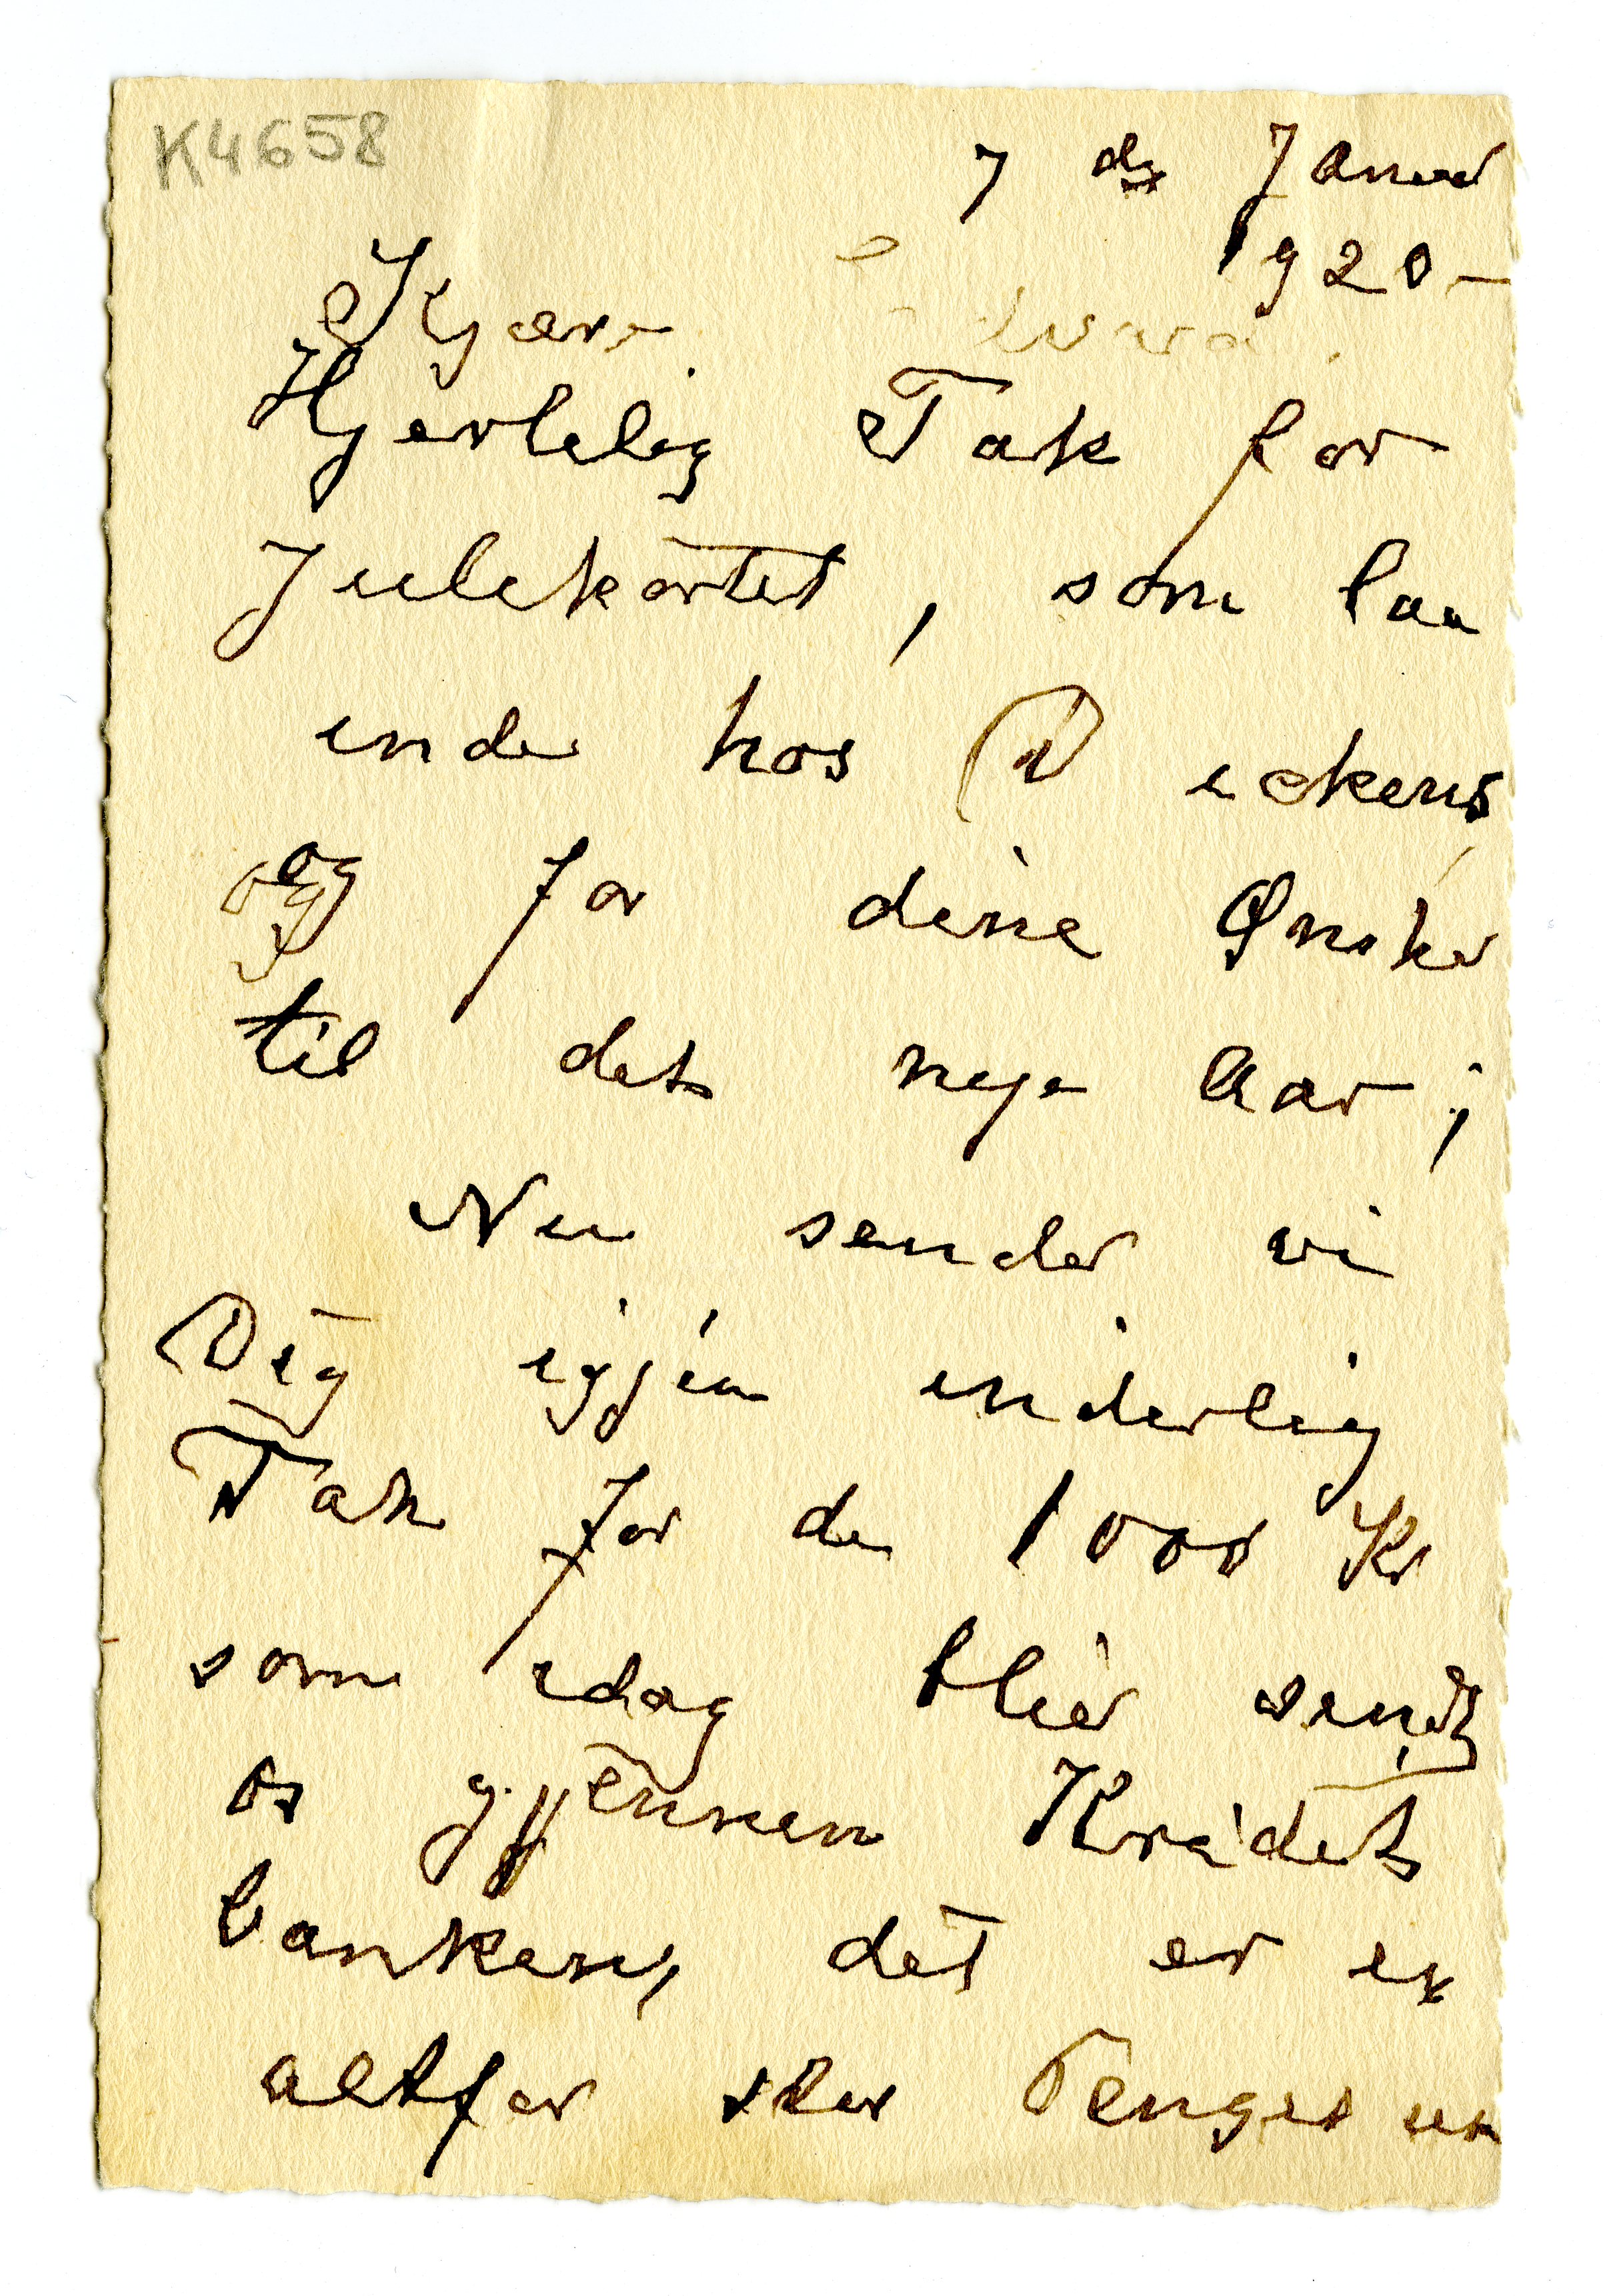 K4658
7 de Januar
1920 –
Kjære Edvard.
Hjertelig Tak for
Julekortet, som laa
inde hos Deckens
og for dine Ønsker
til det nye Aar;
Nu sender vi
Dig igjen inderlig
Tak for de 1000 Kr
som idag blev sendt
os gjennem Kredit
banken, det er en
altfor stor Pengesum